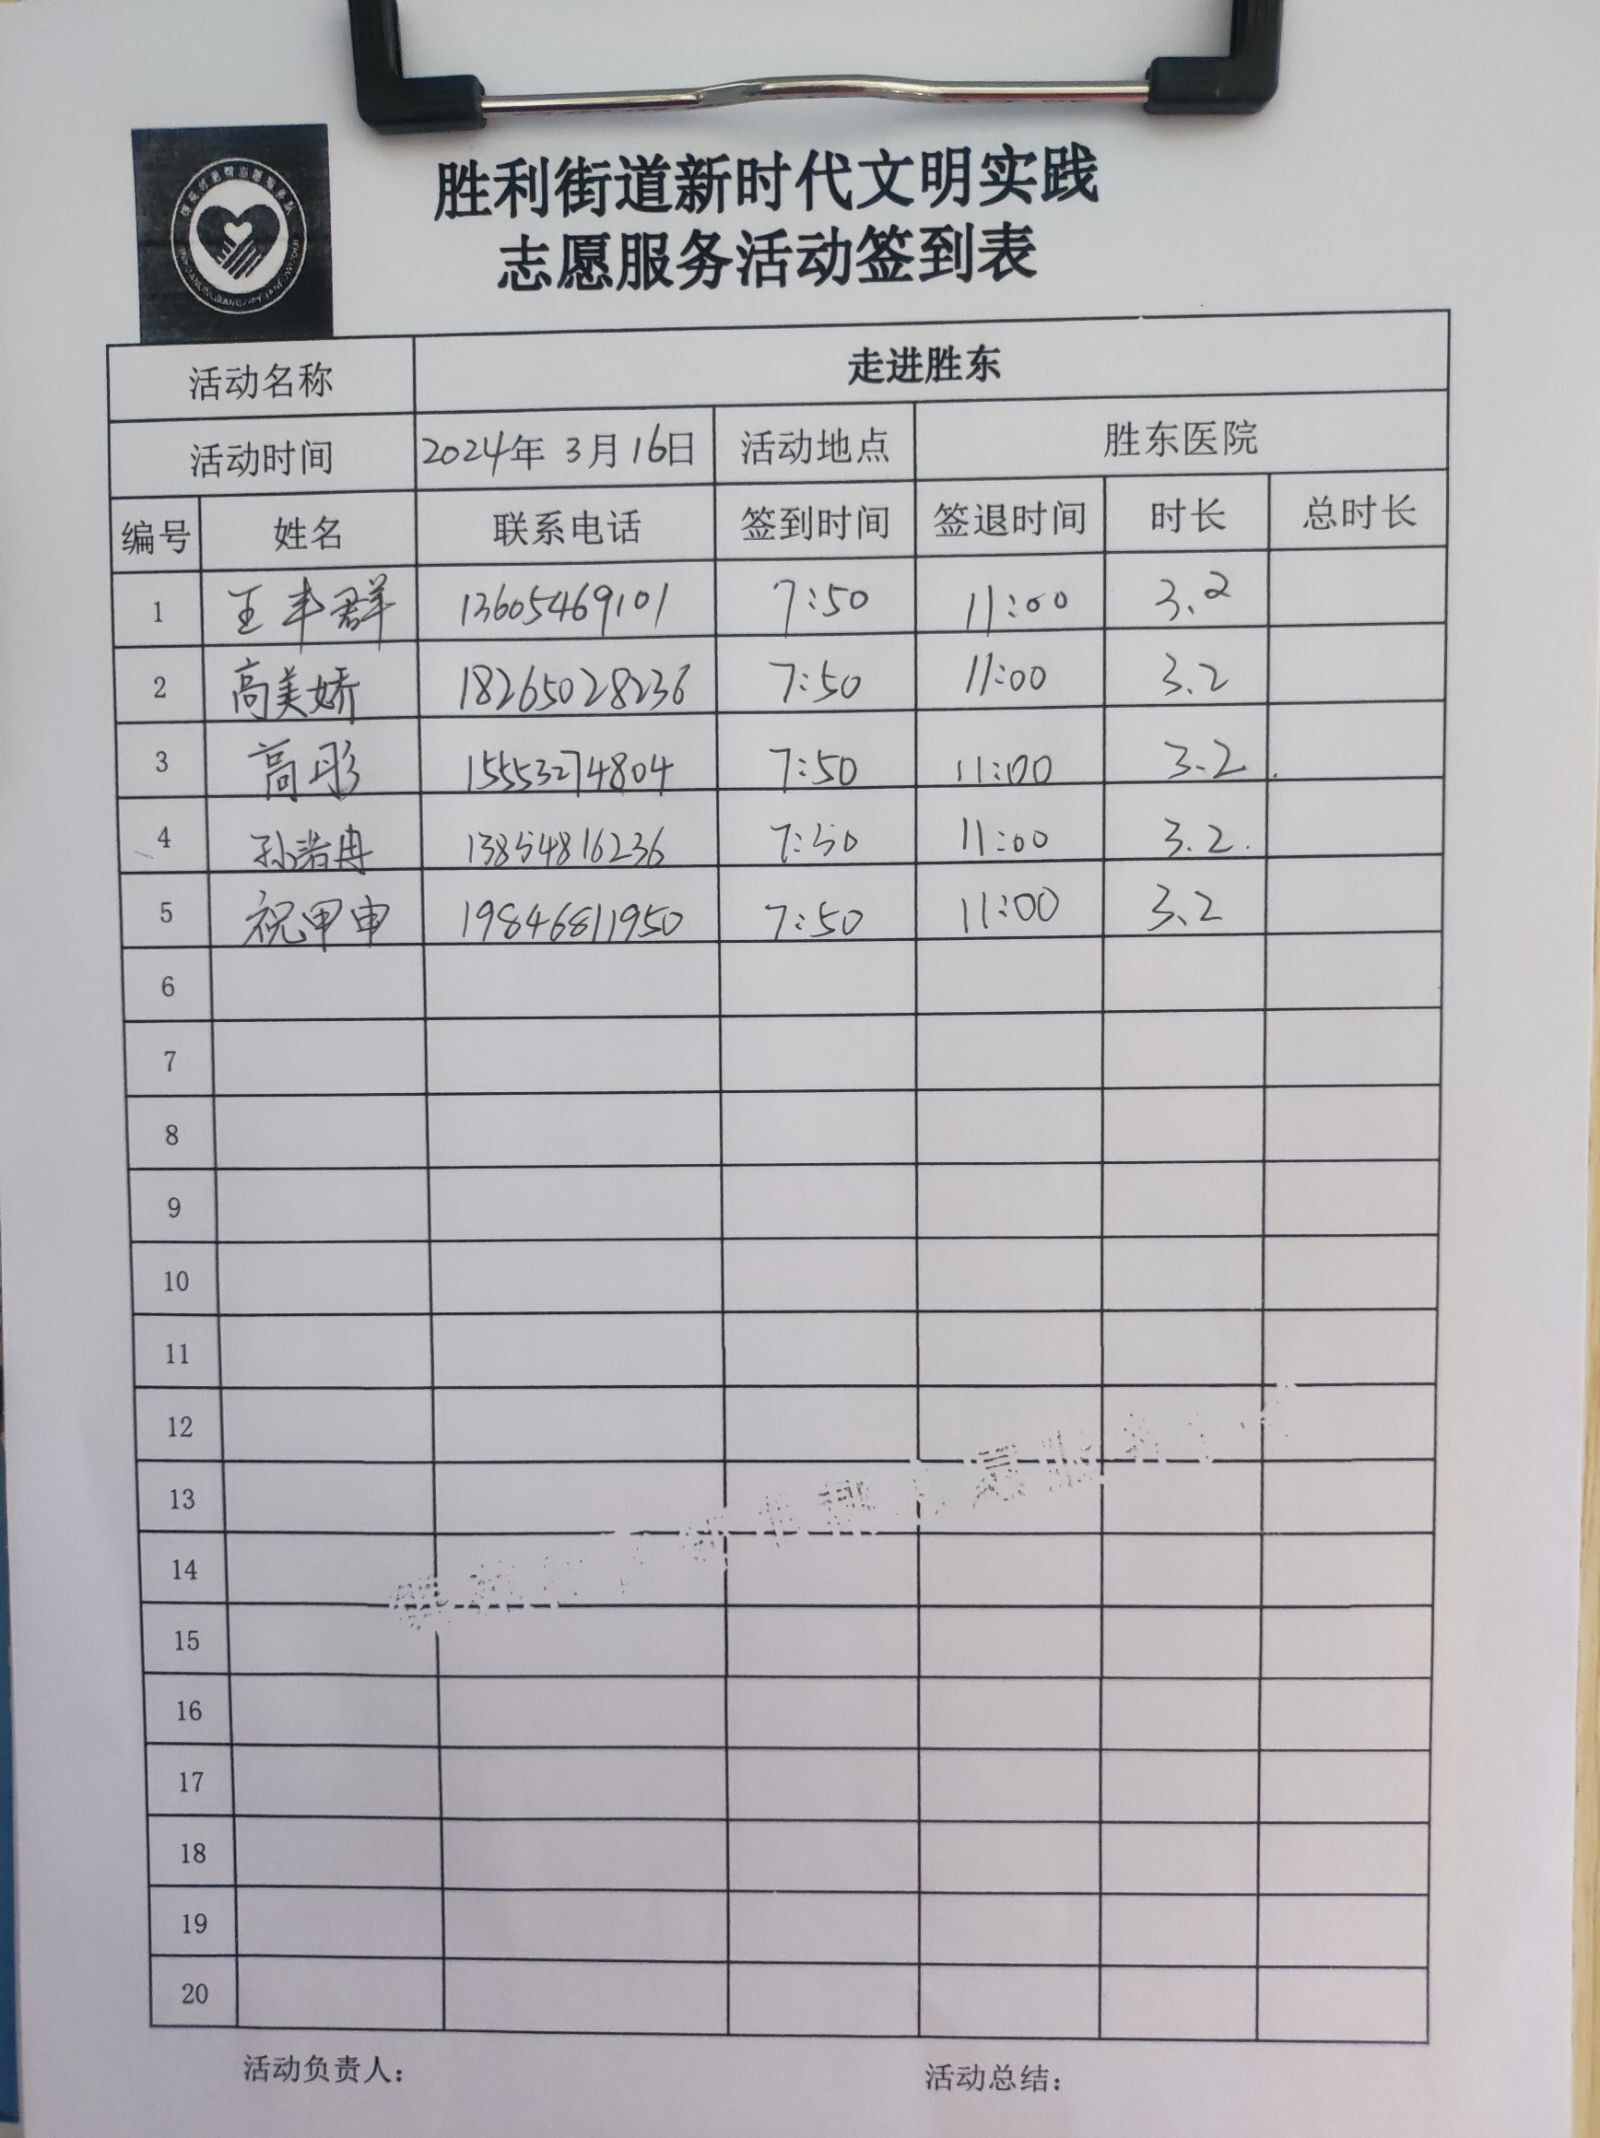 胜利街道新时代文明实践
志愿服务活动签到表
活动名称 走进胜东
活动时间 2024年 3月16日 活动地点 胜东医院
编号 姓名 联系电话 签到时间 签退时间 时长 总时长
1 王丰群 13605469101 7:50 11:00 3.2
2 高美娇 18265028236 7:50 11:00 3.2
3 高彤 15553274804 7:50 11:00 3.2
4 孙浩冉 13854816236 7:50 11:00 3.2
5 祝甲申 19846811950 7:50 11:00 3.2
6
7
8
9
10
11
12
13
14
15
16
17
18
19
20
活动负责人: 活动总结: